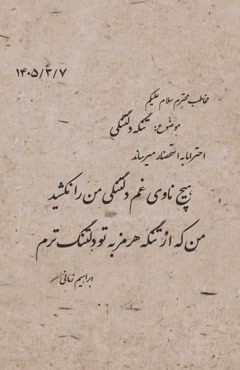 ۱۴۰۵/۳/۷
مخاطب محترم سلام علیکم
موضوع: تنگه دلتنگی
احتراما به استحضار میرساند
هیچ ناوی غم دلتنگی من را نکشید
من که از تنگه هرمز به تو دلتنگ ترم
ابراهیم زمانی